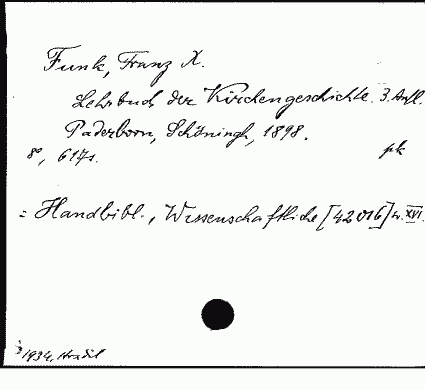 Funk, Franz X.
Lehrbuch der Kirchengeschichte. 3. Aufl.
Paderborn, Schöningh, 1898.
8°, 617 s. pk
= Handbibl., Wissenschaftliche [42016] w. XVI.
1934.